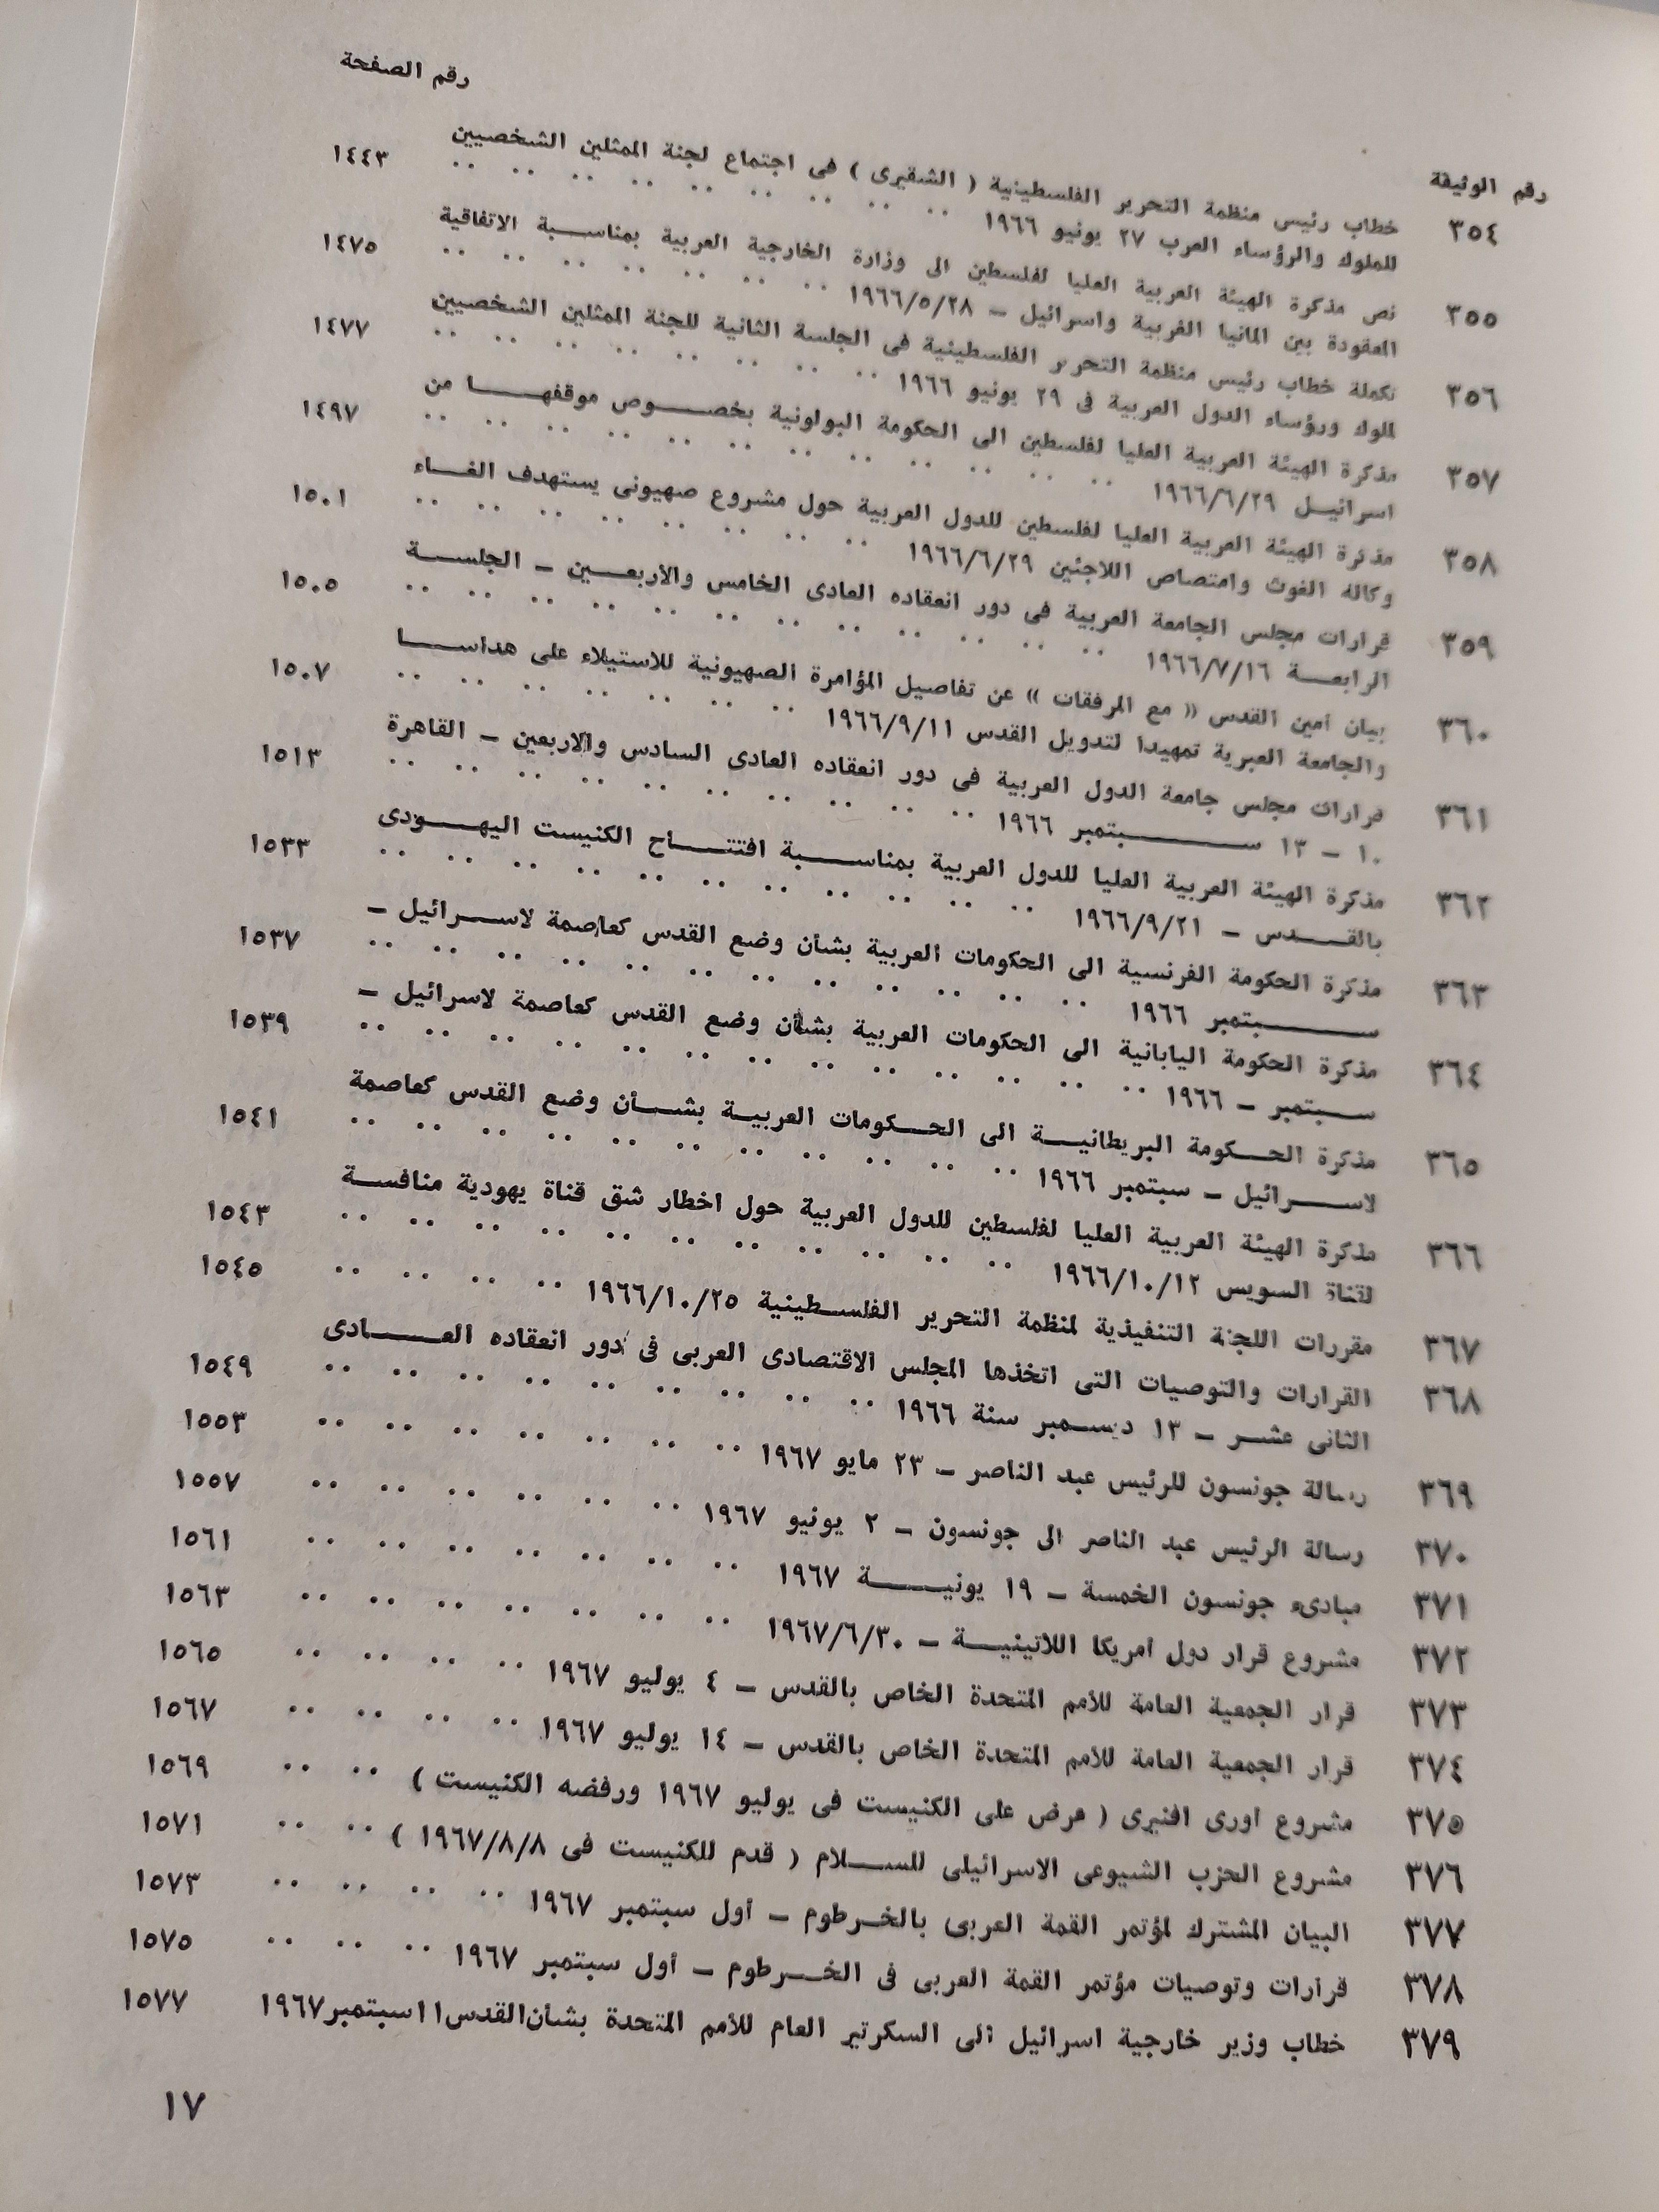 رقم الصفحة
رقم الوثيقة
٣٥٤ خطاب رئيس منظمة التحرير الفلسطينية ( الشقيرى ) فى اجتماع لجنة الممثلين الشخصيين
للملوك والرؤساء العرب ٢٧ يونيو ١٩٦٦ ١٤٤٣
٣٥٥ نص مذكرة الهيئة العربية العليا لفلسطين الى وزارة الخارجية العربية بمناسبة الاتفاقية
المعقودة بين المانيا الغربية واسرائيل – ١٩٦٦/٥/٢٨ ١٤٧٥
٣٥٦ تكملة خطاب رئيس منظمة التحرير الفلسطينية فى الجلسة الثانية للجنة الممثلين الشخصيين
لملوك ورؤساء الدول العربية فى ٢٩ يونيو ١٩٦٦ ١٤٧٧
٣٥٧ مذكرة الهيئة العربية العليا لفلسطين الى الحكومة البولونية بخصوص موقفها من
اسرائيل ١٩٦٦/٦/٢٩ ١٤٩٧
٣٥٨ مذكرة الهيئة العربية العليا لفلسطين للدول العربية حول مشروع صهيونى يستهدف الغاء
وكالة الغوث وامتصاص اللاجئين ١٩٦٦/٦/٢٩ ١٥٠١
٣٥٩ قرارات مجلس الجامعة العربية فى دور انعقاده العادى الخامس والأربعين – الجلسة
الرابعة ١٩٦٦/٧/١٦ ١٥٠٥
٣٦٠ بيان أمين القدس « مع المرفقات » عن تفاصيل المؤامرة الصهيونية للاستيلاء على هداسا
والجامعة العبرية تمهيدا لتدويل القدس ١٩٦٦/٩/١١ ١٥٠٧
٣٦١ قرارات مجلس جامعة الدول العربية فى دور انعقاده العادى السادس والاربعين – القاهرة
١٠ – ١٣ سبتمبر ١٩٦٦ ١٥١٣
٣٦٢ مذكرة الهيئة العربية العليا للدول العربية بمناسبة افتتاح الكنيست اليهودى
بالقدس – ١٩٦٦/٩/٢١ ١٥٣٣
٣٦٣ مذكرة الحكومة الفرنسية الى الحكومات العربية بشأن وضع القدس كعاصمة لاسرائيل –
سبتمبر ١٩٦٦ ١٥٣٧
٣٦٤ مذكرة الحكومة اليابانية الى الحكومات العربية بشأن وضع القدس كعاصمة لاسرائيل –
سبتمبر – ١٩٦٦ ١٥٣٩
٣٦٥ مذكرة الحكومة البريطانية الى الحكومات العربية بشأن وضع القدس كعاصمة
لاسرائيل – سبتمبر ١٩٦٦ ١٥٤١
٣٦٦ مذكرة الهيئة العربية العليا لفلسطين للدول العربية حول اخطار شق قناة يهودية منافسة
لقناة السويس ١٩٦٦/١٠/١٢ ١٥٤٣
٣٦٧ مقررات اللجنة التنفيذية لمنظمة التحرير الفلسطينية ١٩٦٦/١٠/٢٥ ١٥٤٥
٣٦٨ القرارات والتوصيات التى اتخذها المجلس الاقتصادى العربى فى دور انعقاده العادى
الثانى عشر – ١٣ ديسمبر سنة ١٩٦٦ ١٥٤٩
٣٦٩ رسالة جونسون للرئيس عبد الناصر – ٢٣ مايو ١٩٦٧ ١٥٥٣
٣٧٠ رسالة الرئيس عبد الناصر الى جونسون – ٢ يونيو ١٩٦٧ ١٥٥٧
٣٧١ مبادىء جونسون الخمسة – ١٩ يونية ١٩٦٧ ١٥٦١
٣٧٢ مشروع قرار دول أمريكا اللاتينية – ١٩٦٧/٦/٣٠ ١٥٦٣
٣٧٣ قرار الجمعية العامة للأمم المتحدة الخاص بالقدس – ٤ يوليو ١٩٦٧ ١٥٦٥
٣٧٤ قرار الجمعية العامة للأمم المتحدة الخاص بالقدس – ١٤ يوليو ١٩٦٧ ١٥٦٧
٣٧٥ مشروع أورى افنيرى ( عرض على الكنيست فى يوليو ١٩٦٧ ورفضه الكنيست ) ١٥٦٩
٣٧٦ مشروع الحزب الشيوعى الاسرائيلى للسلام ( قدم للكنيست فى ١٩٦٧/٨/٨ ) ١٥٧١
٣٧٧ البيان المشترك لمؤتمر القمة العربى بالخرطوم – أول سبتمبر ١٩٦٧ ١٥٧٣
٣٧٨ قرارات وتوصيات مؤتمر القمة العربى فى الخرطوم – أول سبتمبر ١٩٦٧ ١٥٧٥
٣٧٩ خطاب وزير خارجية اسرائيل الى السكرتير العام للأمم المتحدة بشأن القدس ١١ سبتمبر ١٩٦٧ ١٥٧٧
١٧